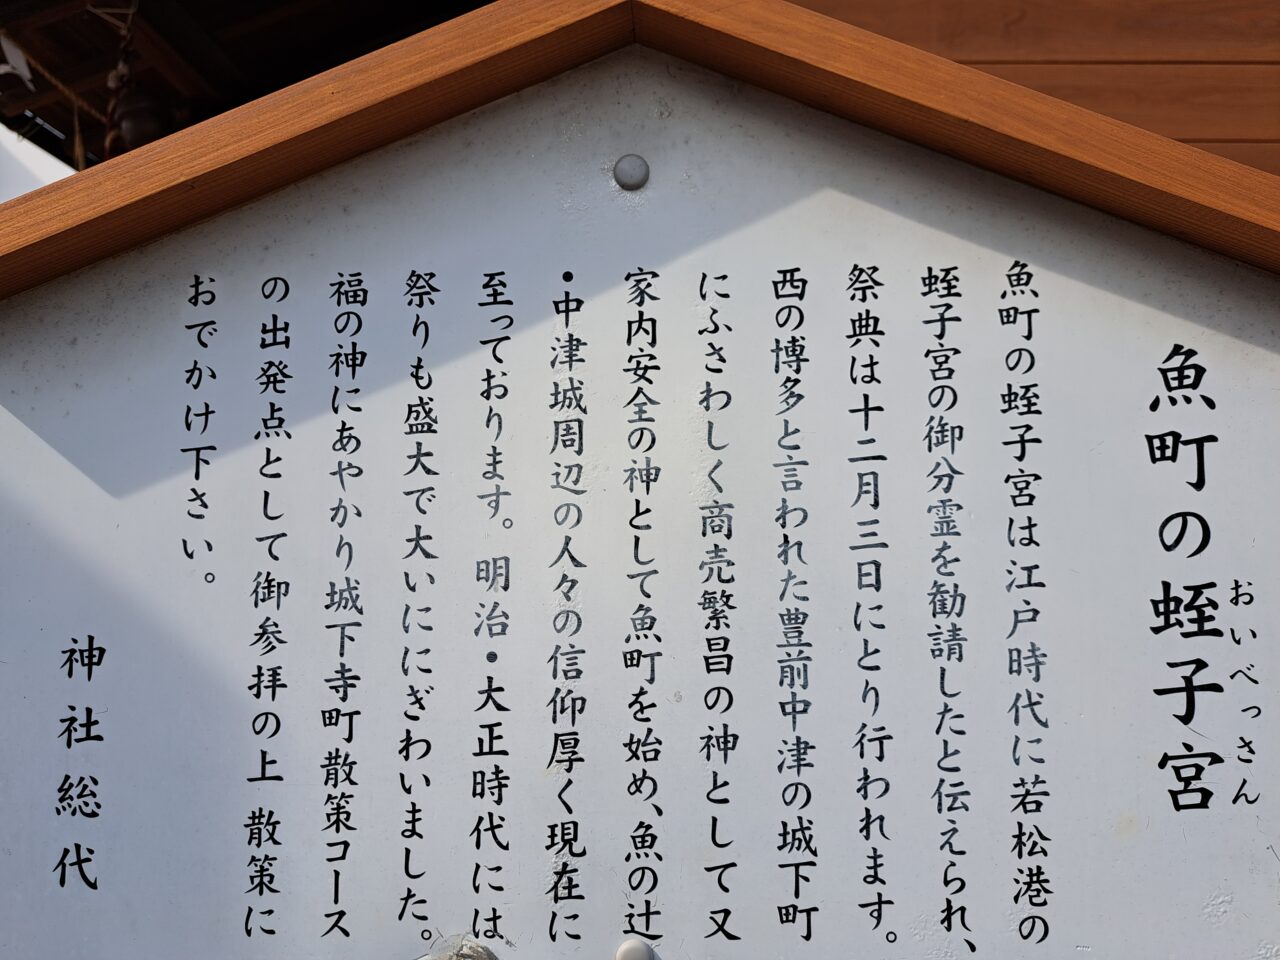 魚町の蛭子宮
おいべっさん
魚町の蛭子宮は江戸時代に若松港の
蛭子宮の御分霊を勧請したと伝えられ、
祭典は十二月三日にとり行われます。
西の博多と言われた豊前中津の城下町
にふさわしく商売繁昌の神として又
家内安全の神として魚町を始め、魚の辻
・中津城周辺の人々の信仰厚く現在に
至っております。明治・大正時代には
祭りも盛大で大いににぎわいました。
福の神にあやかり城下寺町散策コース
の出発点として御参拝の上 散策に
おでかけ下さい。
神社総代